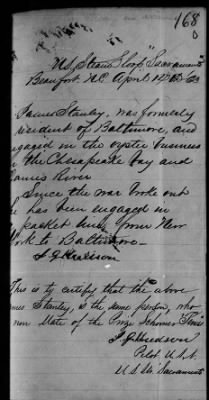 168
U.S. Steam Sloop "Sacramento"
Beaufort N.C. April 12th
James Stanley, was formerly
resident of Baltimore, and
engaged in the oyster business
in the Chesapeake Bay and
James River
Since the war broke out
he has been engaged in
packet line from New
York to Baltimore
This is to certify that the above
James Stanley, is the same person, who
now Mate of the Prize Schooner
Pilot U.S.N.
U.S.S. Sacramento